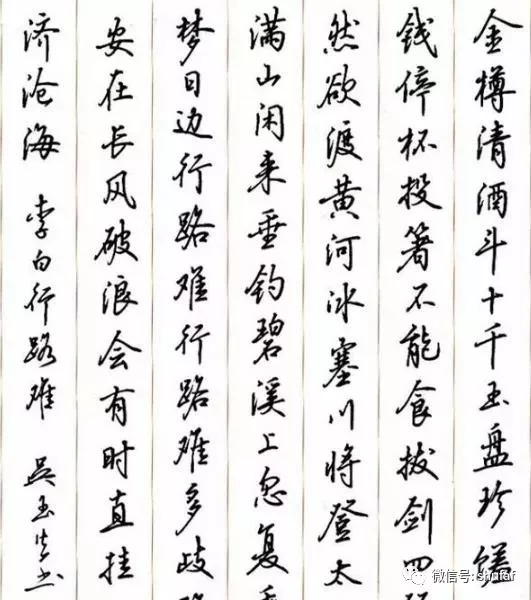 金樽清酒斗十千玉盘珍馐
钱停杯投箸不能食拔剑四
然欲渡黄河冰塞川将登太
满山闲来垂钓碧溪上忽复
梦日边行路难行路难多歧
安在长风破浪会有时直挂
济沧海 李白行路难 吴玉生书
微信号: shufaf